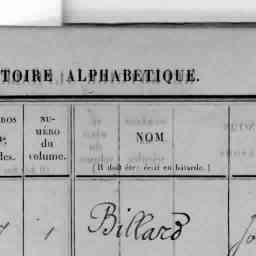 TOIRE ALPHABETIQUE.
NU-
MÉRO
du
volume.
NOM
(Il doit être écrit en bâtarde.)
1 Billard